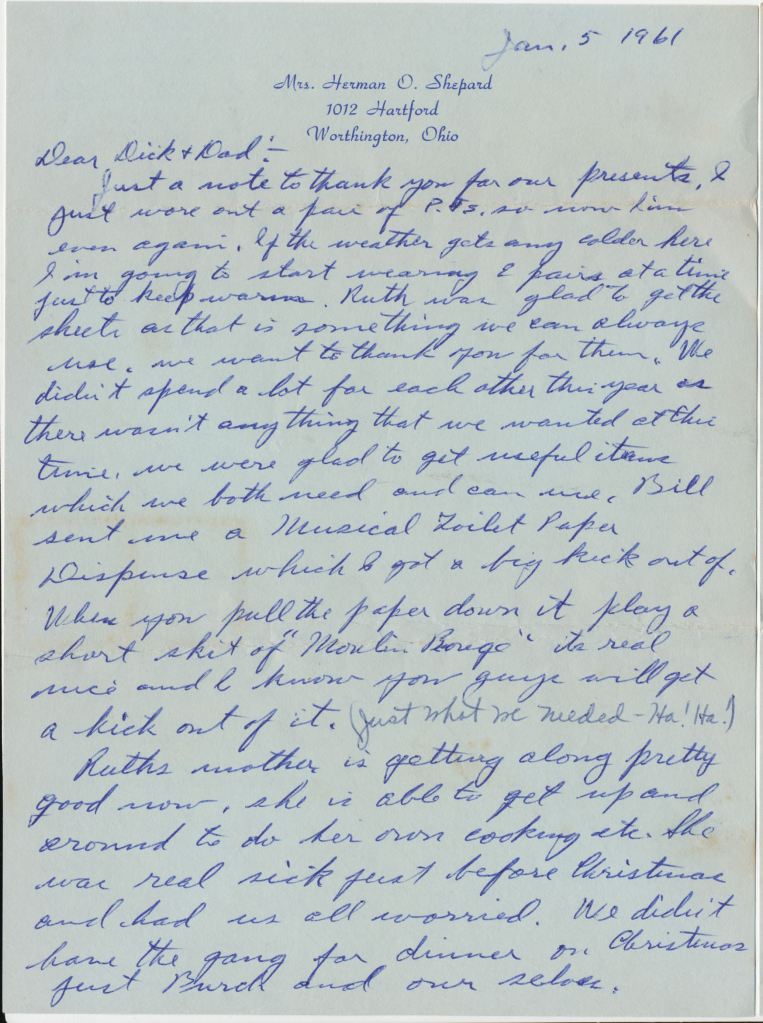 Jan. 5 1961
Mrs. Herman O. Shepard
1012 Hartford
Worthington, Ohio
Dear Dick & Dad :-
Just a note to thank you for our presents. I
just wore out a pair of P.Js. so now I im
even again. If the weather gets any colder here
I im going to start wearing 2 pairs at a time
just to keep warm. Ruth was glad to get the
sheets as that is something we can always
use. we want to thank you for them. We
didn't spend a lot for each other this year as
there wasn't anything that we wanted at this
time. we were glad to get useful items
which we both need and can use. Bill
sent me a Musical Toilet Paper
Dispense which I got a big kick out of.
When you pull the paper down it play a
short skit of "Moulin Rouge" its real
nice and I know you guys will get
a kick out of it. (Just what we needed - Ha! Ha!)
Ruths mother is getting along pretty
good now, she is able to get up and
around to do her own cooking etc. She
was real sick just before Christmas
and had us all worried. We didn't
have the gang for dinner on Christmas
just and our selves.